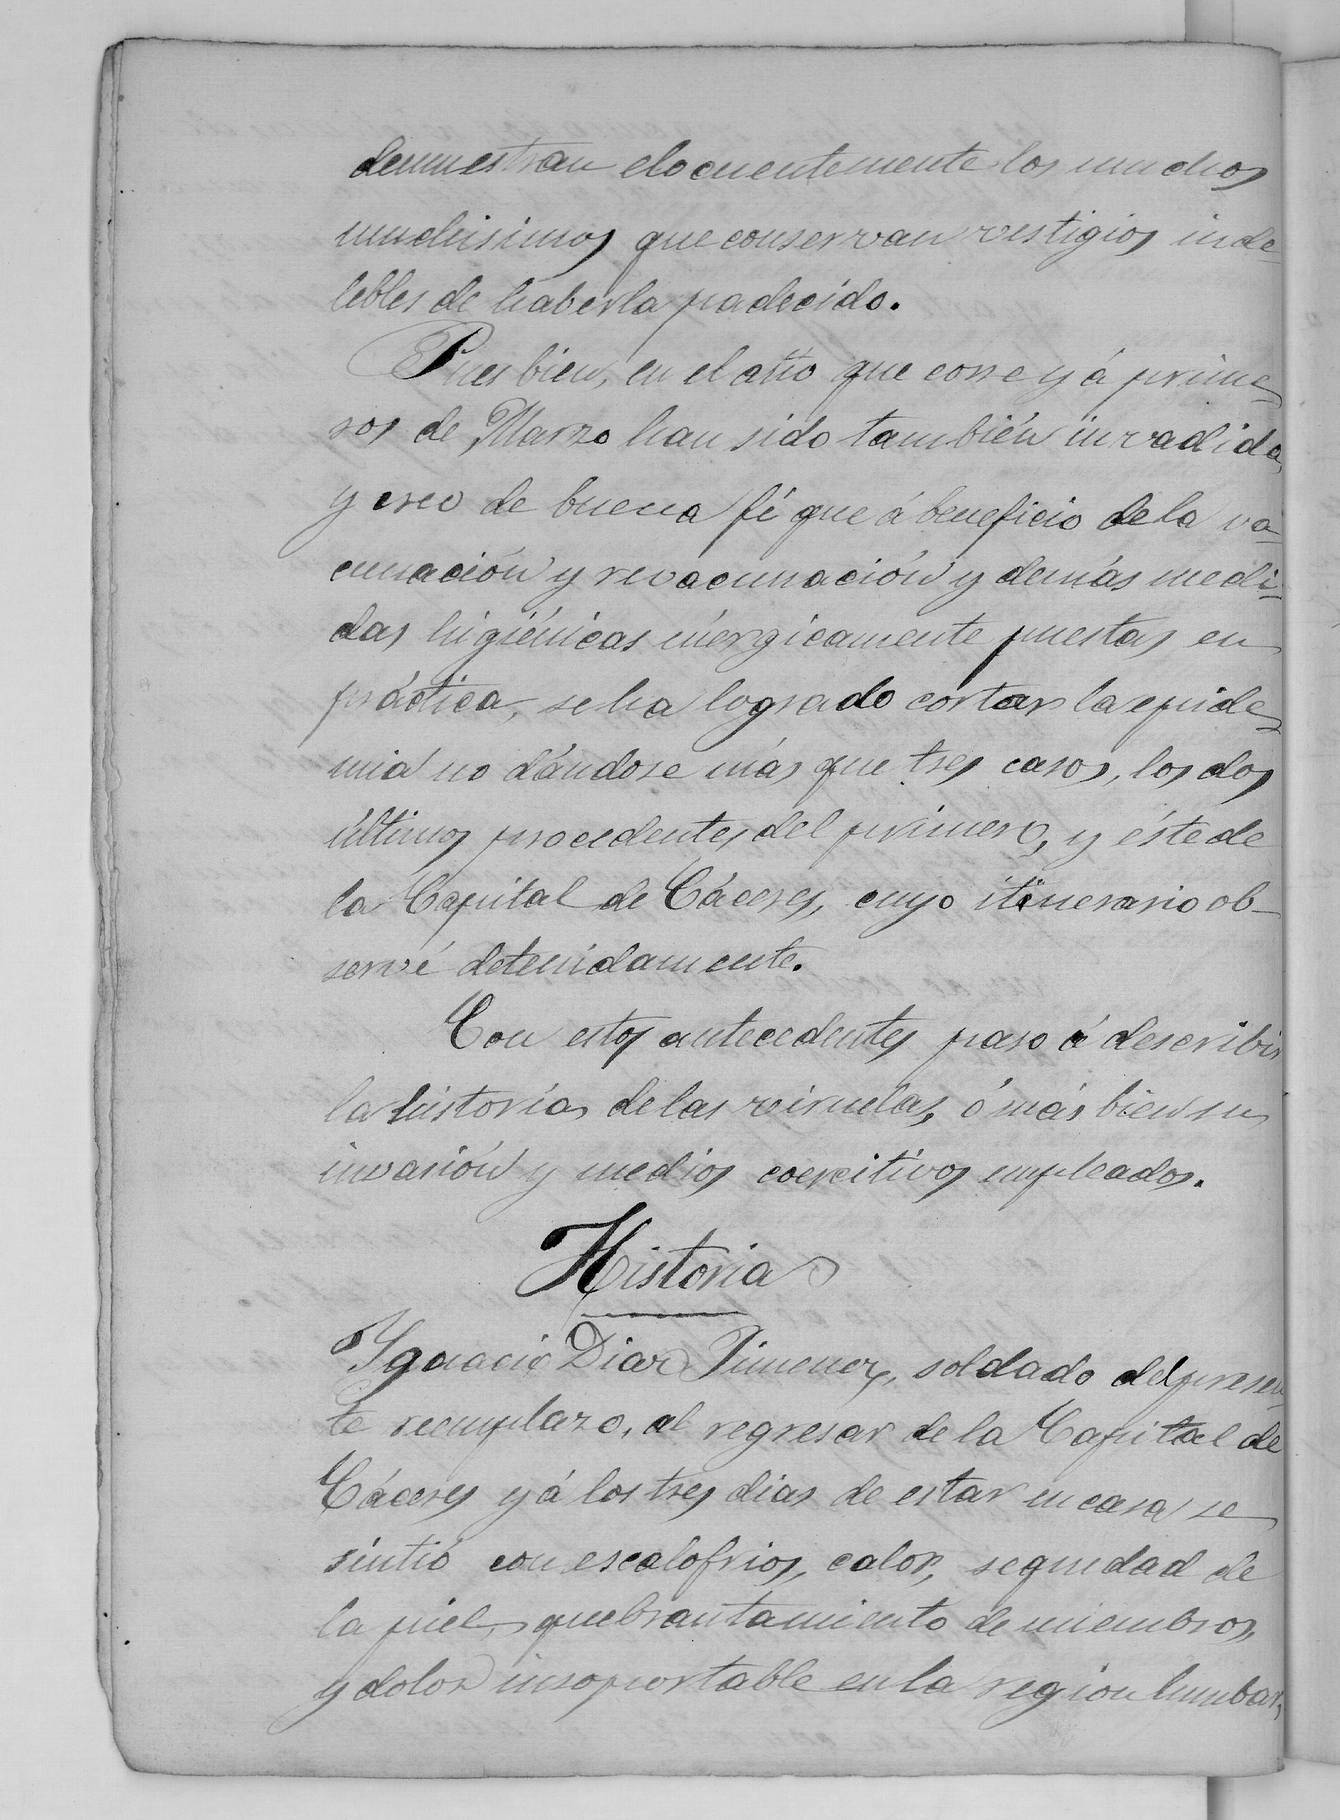 demuestran elocuentemente los muchos
muchisimos que conservan vestigios inde-
lebles de haberla padecido.
Pues bien, en el año que corre y á prime-
ros de Marzo han sido también invadida,
y creo de buena fé que á beneficio de la va-
cunación y revacunación y demás medi-
das higiénicas enérgicamente puestas en
práctica, se ha logrado cortar la epide-
mia no dándose más que tres casos, los dos
últimos procedentes del primero, y éste de
la Capital de Cáceres, cuyo itinerario ob-
servé detenidamente.
Con estos antecedentes paso á describir
la historia de las viruelas, ó más bien su
invasión y medios coercitivos empleados.
Historia
Ygnacio Diaz Jimenez, soldado del presen-
te reemplazo, al regresar de la Capital de
Cáceres y á los tres dias de estar en casa se
sintió con escalofrios, calor, sequedad de
la piel, quebrantamiento de miembros,
y dolor insoportable en la region lumbar,